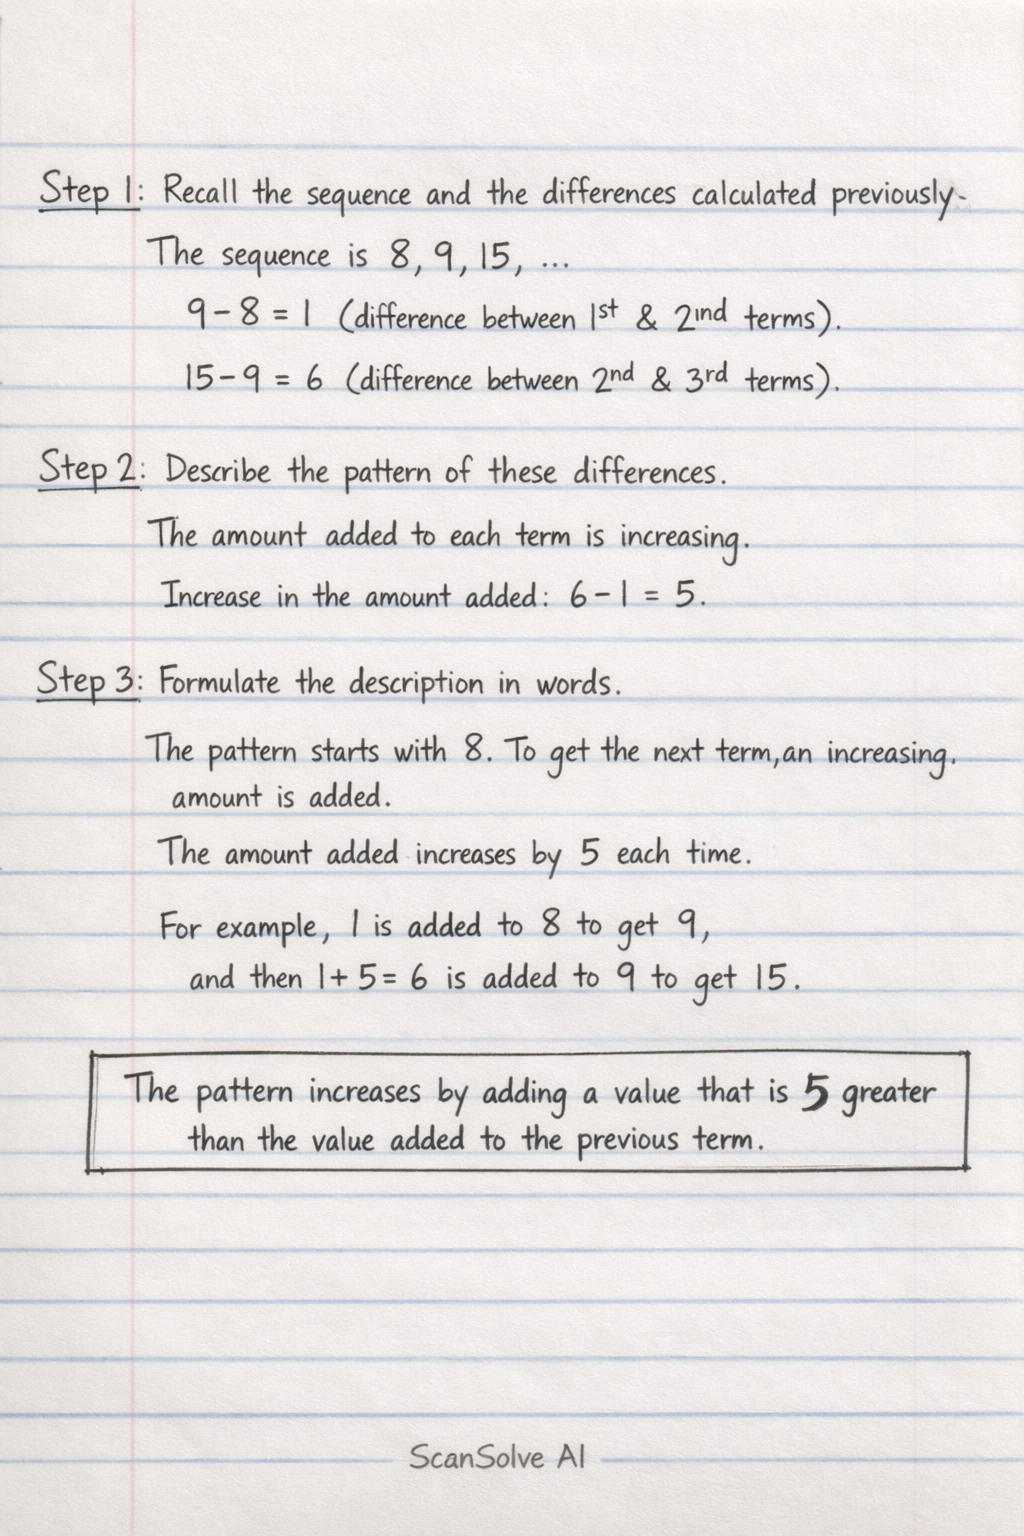 Step 1: Recall the sequence and the differences calculated previously-
The sequence is 8, 9, 15, ...
9 - 8 = 1 (difference between 1st & 2ind terms).
15 - 9 = 6 (difference between 2nd & 3rd terms).
Step 2: Describe the pattern of these differences.
The amount added to each term is increasing.
Increase in the amount added: 6 - 1 = 5.
Step 3: Formulate the description in words.
The pattern starts with 8. To get the next term, an increasing.
amount is added.
The amount added increases by 5 each time.
For example, 1 is added to 8 to get 9,
and then 1 + 5 = 6 is added to 9 to get 15.
The pattern increases by adding a value that is 5 greater
than the value added to the previous term.
ScanSolve AI